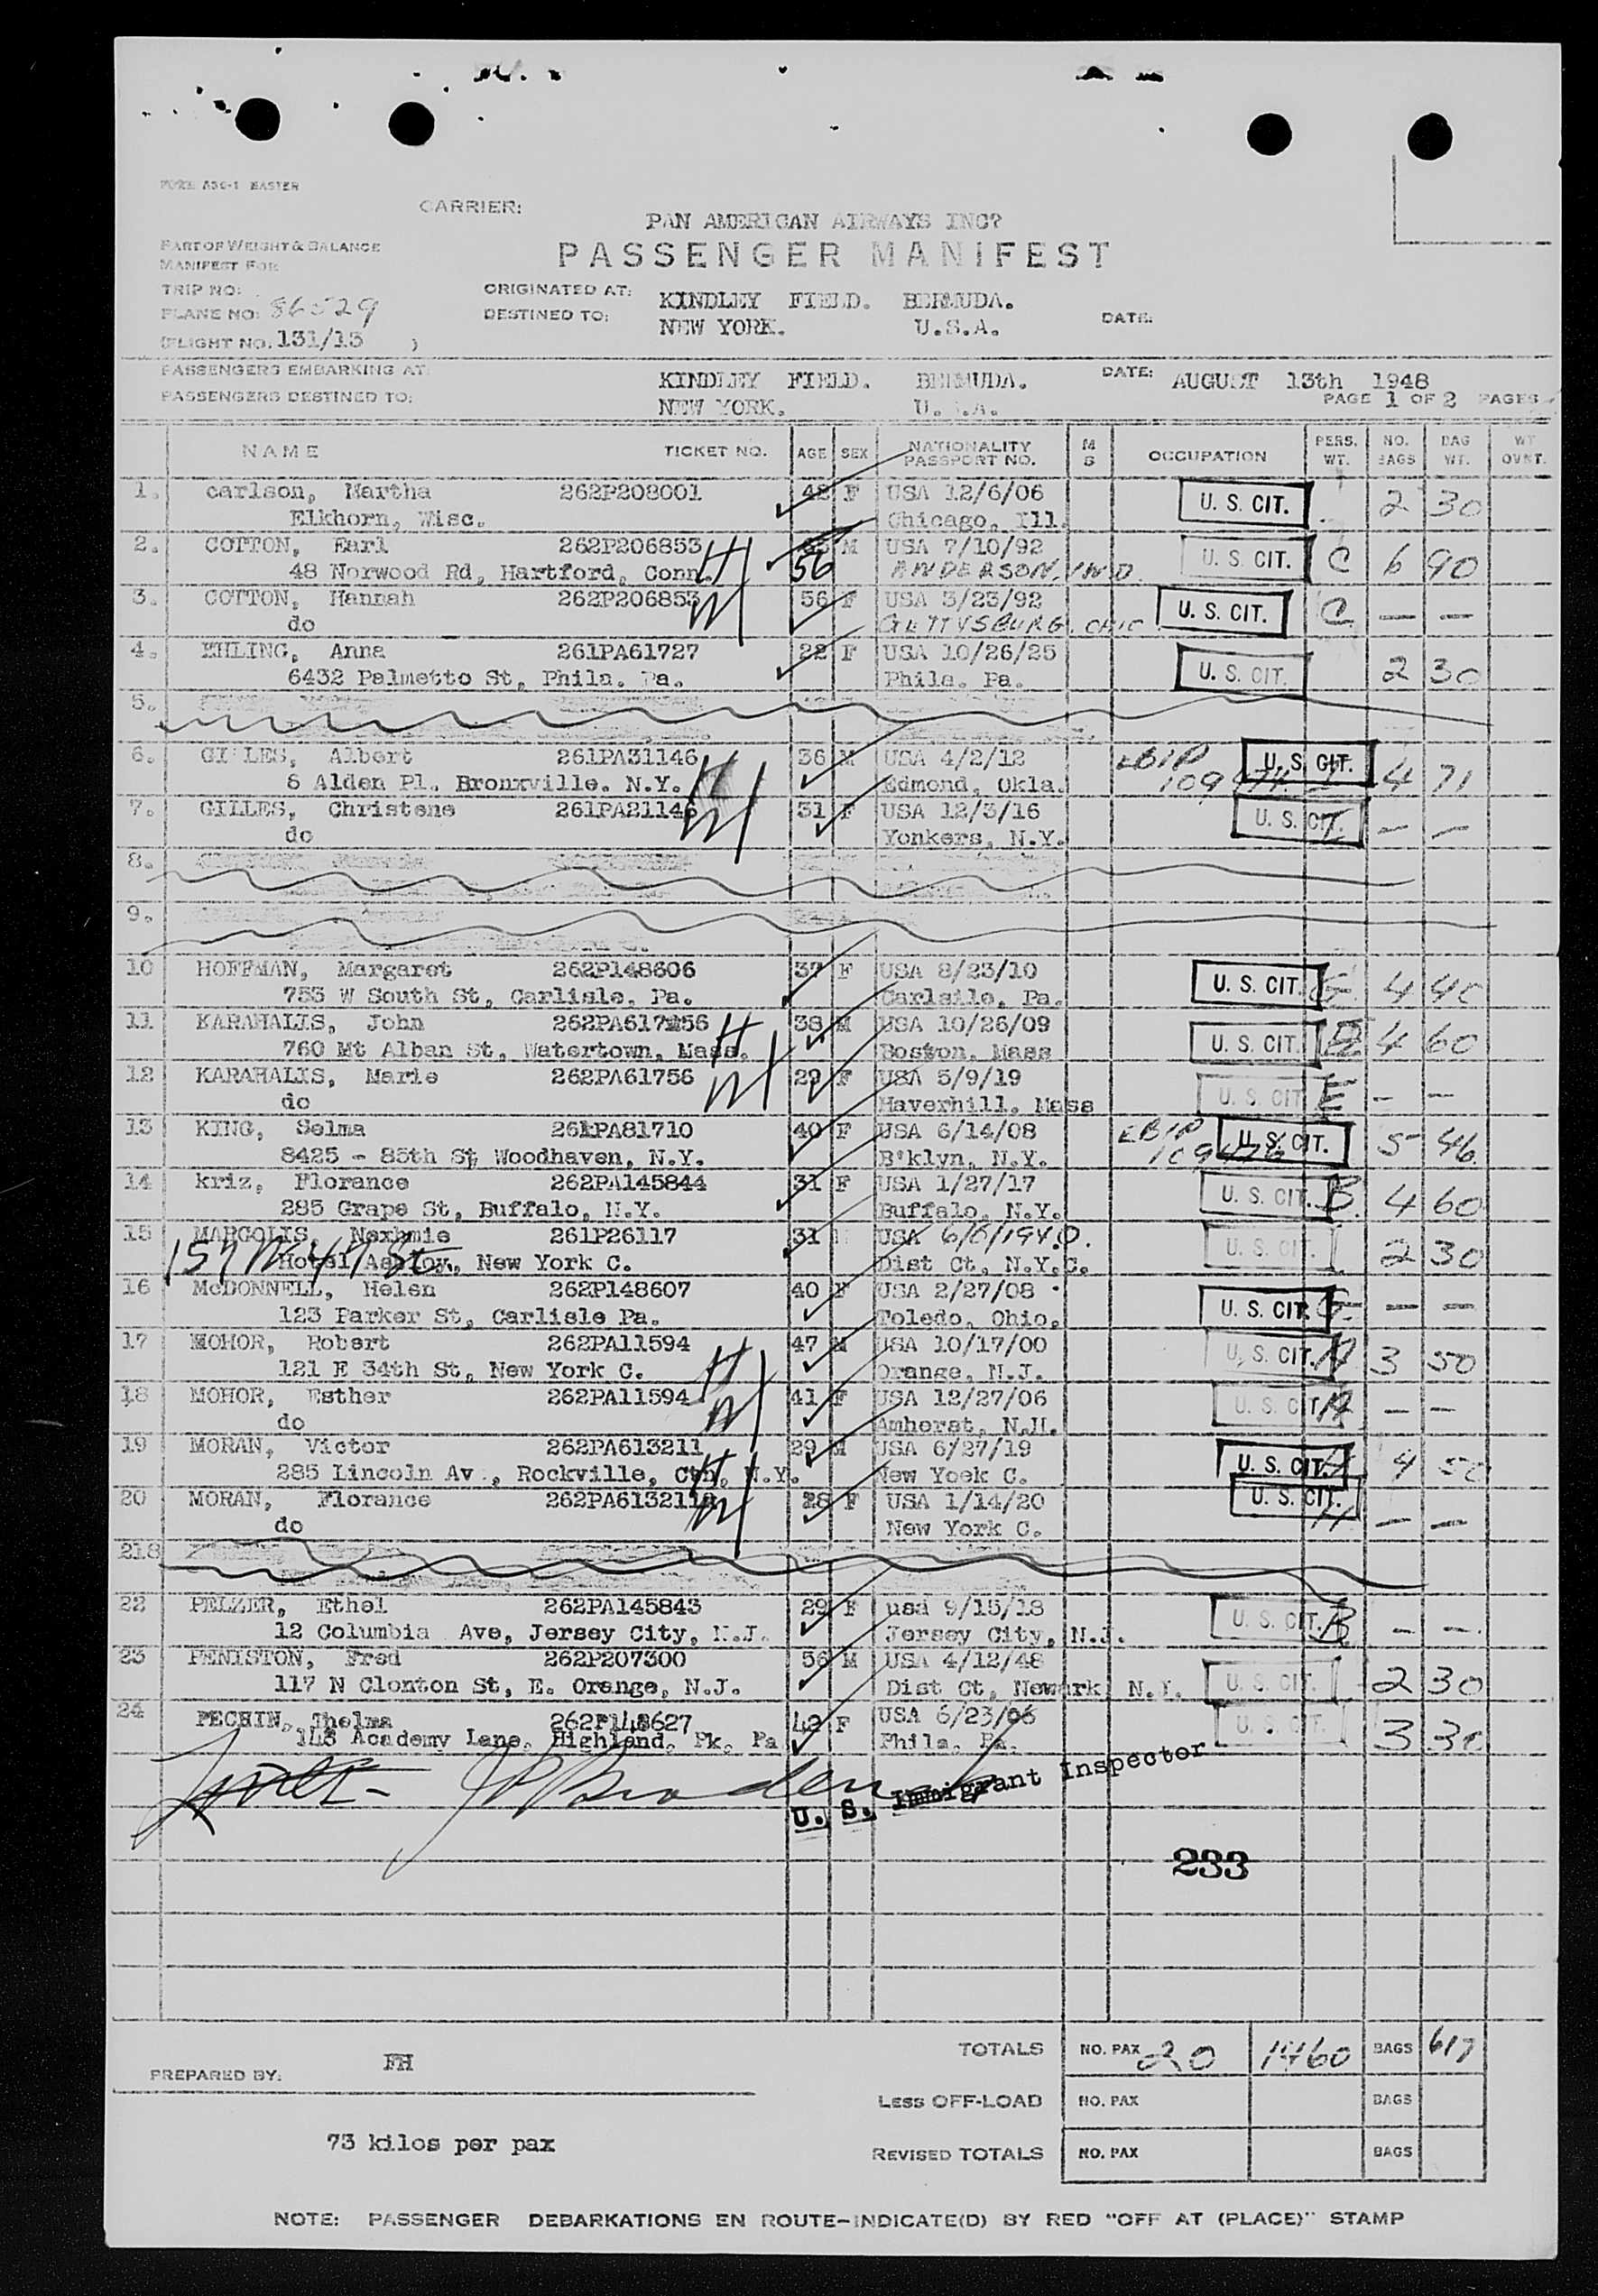 FORM A36-1 EASTER
CARRIER:
PAN AMERICAN AIRWAYS INC?
PASSENGER MANIFEST
PART OF WEIGHT & BALANCE
MANIFEST FOR
TRIP NO:
PLANE NO: 86529
(FLIGHT NO. 131/13 )
ORIGINATED AT: KINDLEY FIELD. BERMUDA.
DESTINED TO: NEW YORK. U.S.A.
DATE:
PASSENGERS EMBARKING AT: KINDLEY FIELD. BERMUDA. DATE: AUGUST 13th 1948
PASSENGERS DESTINED TO: NEW YORK. U.S.A. PAGE 1 OF 2 PAGES
NAME TICKET NO. AGE SEX NATIONALITY PASSPORT NO. M S OCCUPATION PERS. WT. NO. BAGS BAG WT. WT OVNT.
1. carlson, Martha 262P208001 42 F USA 12/6/06 U. S. CIT. 2 30
Elkhorn, Wisc. Chicago, Ill.
2. COTTON, Earl 262P206853 H 56 M USA 7/10/92 U. S. CIT. C 6 90
48 Norwood Rd, Hartford, Conn. ANDERSON, IND.
3. COTTON, Hannah 262P206853 W 56 F USA 3/23/92 U. S. CIT. C — —
do GETTYSBURG. OHIO
4. EHLING, Anna 261PA61727 22 F USA 10/26/25 U. S. CIT. 2 30
6432 Palmetto St, Phila. Pa. Phila. Pa.
5.
6. GILLES, Albert 261PA31146 H 36 M USA 4/2/12 U. S. CIT. 4 71
8 Alden Pl. Bronxville. N.Y. Edmond, Okla.
7. GILLES, Christene 261PA21146 W 31 F USA 12/3/16 U. S. CIT. — —
do Yonkers, N.Y.
8.
9.
10 HOFFMAN, Margaret 262P148606 37 F USA 8/23/10 U. S. CIT. G 4 40
753 W South St, Carlisle, Pa. Carlsile, Pa.
11 KARAHALIS, John H 38 M USA 10/26/09 U. S. CIT. E 4 60
760 Mt Alban St, Watertown, Mass. Boston, Mass
12 KARAHALIS, Marie 262PA61756 W 29 F USA 5/9/19 U. S. CIT E — —
do Haverhill. Mass
13 KING, Selma 261PA81710 40 F USA 6/14/08 U. S. CIT. 5 46
8425 - 85th St Woodhaven, N.Y. B'klyn, N.Y.
14 kriz, Florance 262PA145844 31 F USA 1/27/17 U. S. CIT. B 4 60
285 Grape St, Buffalo, N.Y. Buffalo, N.Y.
15 MARGOLIS, Nexhmie 261P26117 31 USA 6/6/194 U. S. CIT. 2 30
157 W 47 St
Hotel, New York C. Dist Ct, N.Y.C.
16 McDONNELL, Helen 262P148607 40 F USA 2/27/08 U. S. CIT. G — —
123 Parker St, Carlisle Pa. Toledo, Ohio.
17 MOHOR, Robert 262PA11594 H 47 M USA 10/17/00 U. S. CIT. A 3 50
121 E 34th St, New York C. Orange, N.J.
18 MOHOR, Esther 262PA11594 W 41 F USA 12/27/06 U. S. CIT A — —
do Amherst, N.H.
19 MORAN, Victor 262PA613211 H 29 M USA 6/27/19 U. S. CIT. H 4 50
285 Lincoln Av., Rockville, Ctn, N.Y. New Yoek C.
20 MORAN, Florance W 28 F USA 1/14/20 U. S. CIT. H — —
do New York C.
218
22 PELZER, Ethel 262PA145843 29 F usa 9/15/18 U. S. CIT. B — —
12 Columbia Ave, Jersey City, N.J. Jersey City, N.J.
23 PENISTON, Fred 262P207300 56 M USA 4/12/48 U. S. CIT. 2 30
117 N Clonton St, E. Orange, N.J. Dist Ct, Newark N.J.
24 PECHIN, Thelma 262P148627 42 F USA 6/23/06 U. S. CIT. 3 30
148 Academy Lane, Highland, Pk, Pa Phila, Pa.
U. S. Immigrant Inspector
233
PREPARED BY: FH
TOTALS NO. PAX 20 1460 BAGS 617
LESS OFF-LOAD NO. PAX BAGS
73 kilos per pax
REVISED TOTALS NO. PAX BAGS
NOTE: PASSENGER DEBARKATIONS EN ROUTE-INDICATE(D) BY RED "OFF AT (PLACE)" STAMP